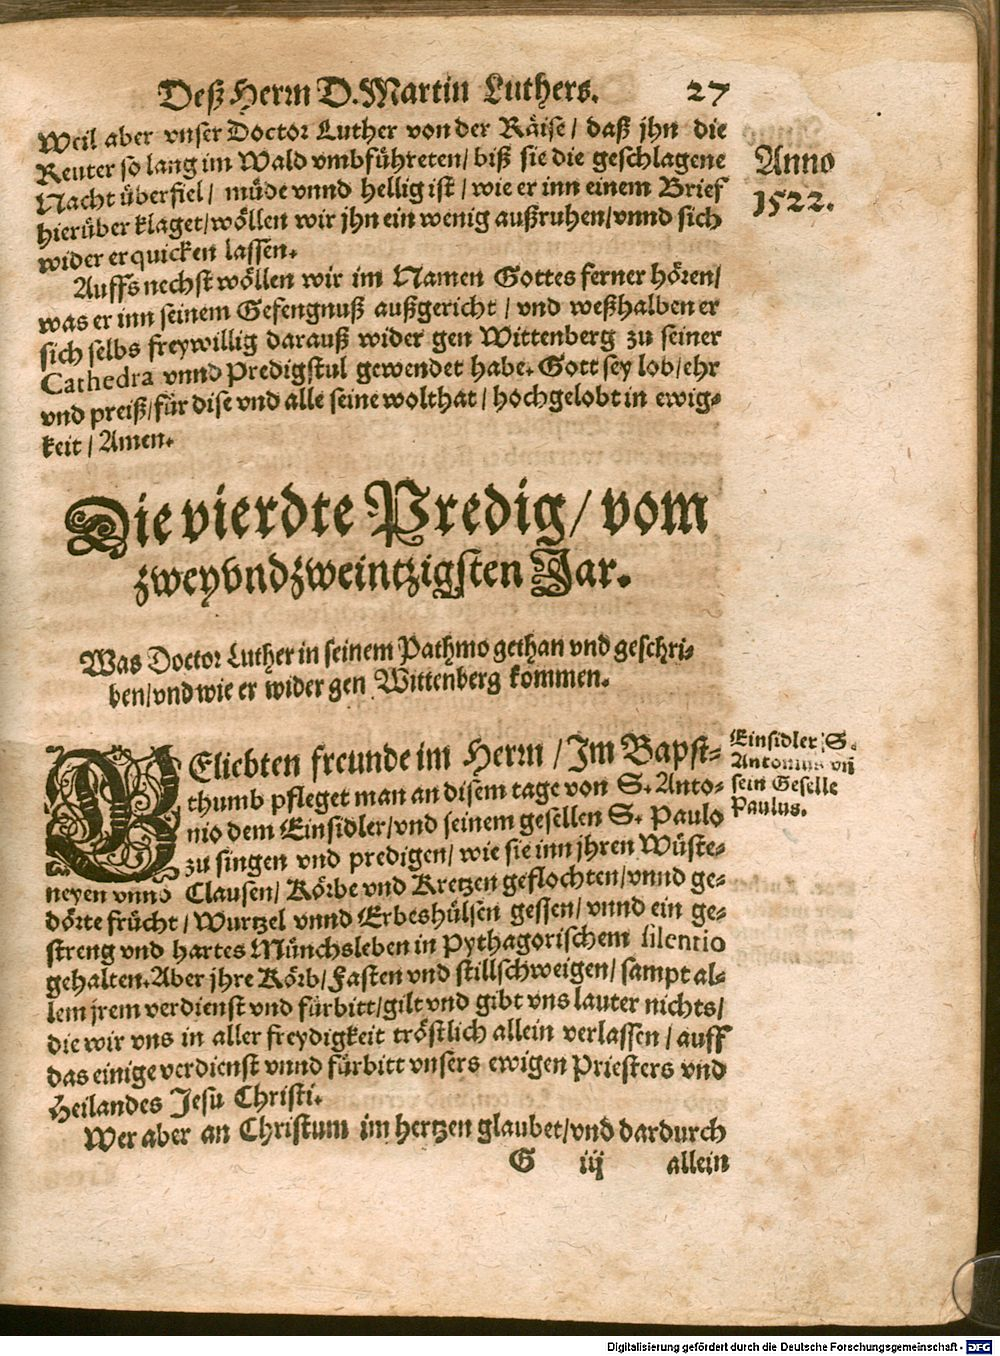 Deß Herrn D. Martin Luthers. 27
Weil aber vnser Doctor Luther von der Räise / daß jhn die
Reuter so lang im Wald vmbführeten / biß sie die geschlagene
Nacht überfiel / müde vnnd hellig ist / wie er inn einem Brief
hierüber klaget / wöllen wir jhn ein wenig außruhen / vnnd sich
wider erquicken lassen.
Anno
1522.
Auffs nechst wöllen wir im Namen Gottes ferner hören /
was er inn seinem Gefengnuß außgericht / vnd weßhalben er
sich selbs freywillig darauß wider gen Wittenberg zu seiner
Cathedra vnnd Predigstul gewendet habe. Gott sey lob / ehr
vnd preiß / für dise vnd alle seine wolthat / hochgelobt in ewig-
keit / Amen.
Die vierdte Predig / vom
zweyvndzweintzigsten Jar.
Was Doctor Luther in seinem Pathmo gethan vnd geschri-
ben / vnd wie er wider gen Wittenberg kommen.
GEliebten freunde im Herrn / Im Bapst-
thumb pfleget man an disem tage von S. Anto-
nio dem Einsidler / vnd seinem gesellen S. Paulo
zu singen vnd predigen / wie sie inn jhren Wüste-
neyen vnnd Clausen / Körbe vnd Kretzen geflochten / vnnd ge-
dörte frücht / Wurtzel vnnd Erbeshülsen gessen / vnnd ein ge-
streng vnd hartes Münchsleben in Pythagorischem silentio
gehalten. Aber jhre Körb / Fasten vnd stillschweigen / sampt al-
lem jrem verdienst vnd fürbitt / gilt vnd gibt vns lauter nichts /
die wir vns in aller freydigkeit tröstlich allein verlassen / auff
das einige verdienst vnnd fürbitt vnsers ewigen Priesters vnd
Heilandes Jesu Christi.
Einsidler S.
Antonius vñ
sein Geselle
Paulus.
Wer aber an Christum im hertzen glaubet / vnd dardurch
G iij allein
Digitalisierung gefördert durch die Deutsche Forschungsgemeinschaft - DFG